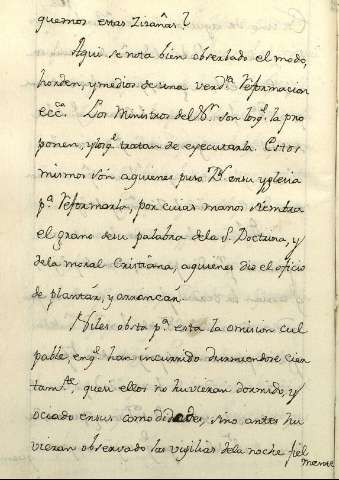 quemos estas Zizañas?
Aqui se nota bien observado el modo,
horden, y medios de una verd.ra Reformacion
ecc.ca Los Ministros del S.r son los q.e la pro
ponen, y los q.e tratan de executarla. Estos
mismos són aquienes puso D.s en su yglesia
p.a Reformarla, por cuias manos siembra
el grano desu palabra de la S. Doctrina, y
dela moral Cristiana, aquienes dio el oficio
de plantár, y arrancár.
Niles obsta p.a esta la omision cul
pable, enq.e han incurrido durmiendose cier
tam.te, quesi ellos no huvieran dormido, y
ociado ensus comodidades, sino antes hu
vieran observado las vigilias dela noche fiel
mente